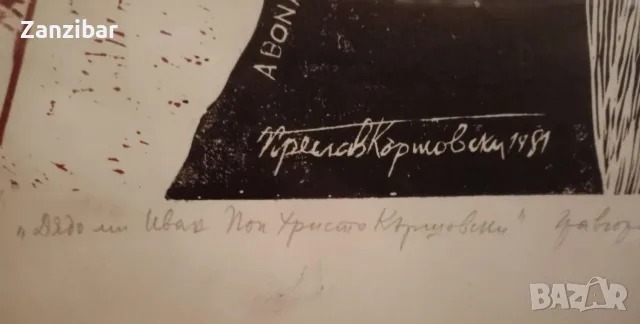 Zanzibar
ABONA
Преслав Кършовски 1981
„Дядо ми Иван Поп Христо Кършовски" гравюра
BAZAR